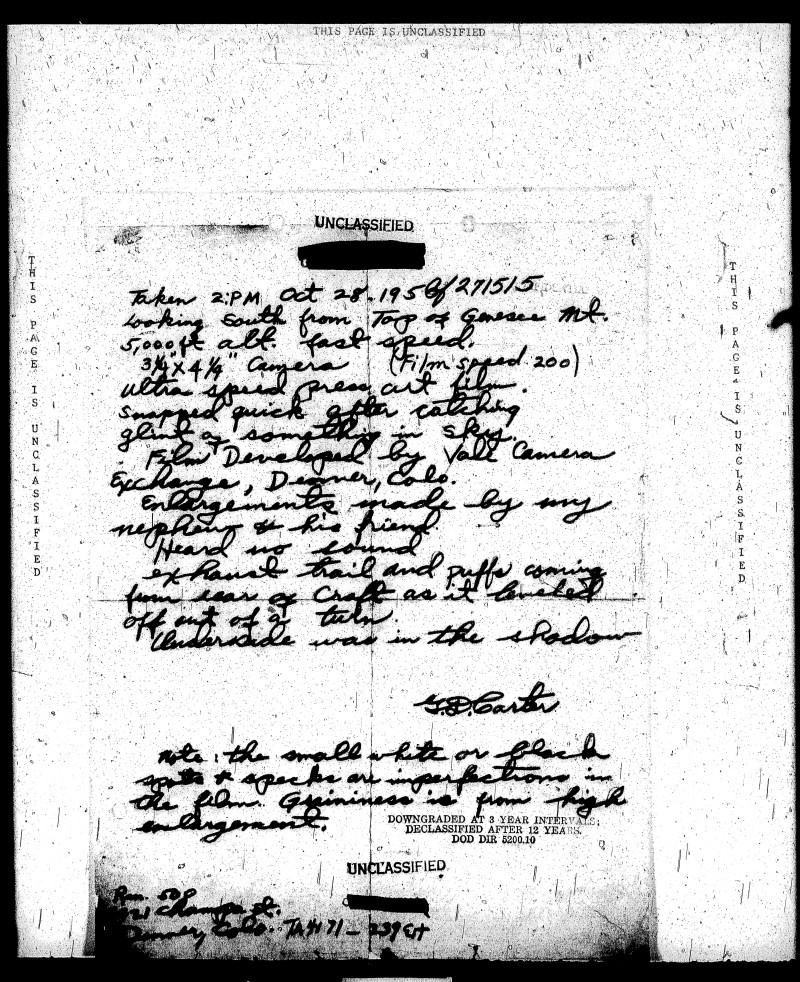 THIS PAGE IS UNCLASSIFIED
UNCLASSIFIED
Taken 2:PM Oct 28-195 271515
Looking South from Top of Genesee Mt.
5,000 ft alt. fast speed.
3¼" x 4¼" Camera (Film speed 200)
Ultra speed press film.
snapped quick after catching
glint of something in sky.
Film Developed by Camera
Exchange, Denver, Colo.
Enlargements made by my
nephew & his friend.
Heard no sound
exhaust trail and puffs coming
from rear of Craft as it leveled
off out of a turn.
Underside was in the shadow
Carter
Note: the small white or black
spots & specks are imperfections in
the film. Graininess is from high
enlargement.
DOWNGRADED AT 3 YEAR INTERVALS;
DECLASSIFIED AFTER 12 YEARS.
DOD DIR 5200.10
UNCLASSIFIED
Rm.
Champa St.
Denver, Colo.
THIS PAGE IS UNCLASSIFIED
THIS PAGE IS UNCLASSIFIED